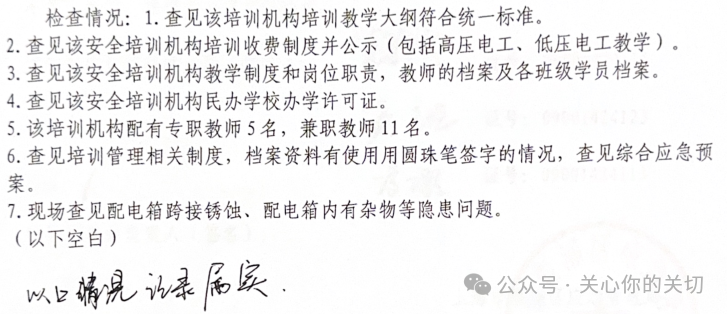 检查情况：1.查见该培训机构培训教学大纲符合统一标准。
2.查见该安全培训机构培训收费制度并公示（包括高压电工、低压电工教学）。
3.查见该安全培训机构教学制度和岗位职责，教师的档案及各班级学员档案。
4.查见该安全培训机构民办学校办学许可证。
5.该培训机构配有专职教师5名，兼职教师11名。
6.查见培训管理相关制度，档案资料有使用用圆珠笔签字的情况，查见综合应急预
案。
7.现场查见配电箱跨接锈蚀、配电箱内有杂物等隐患问题。
（以下空白）
以上情况记录属实.
公众号·关心你的关切